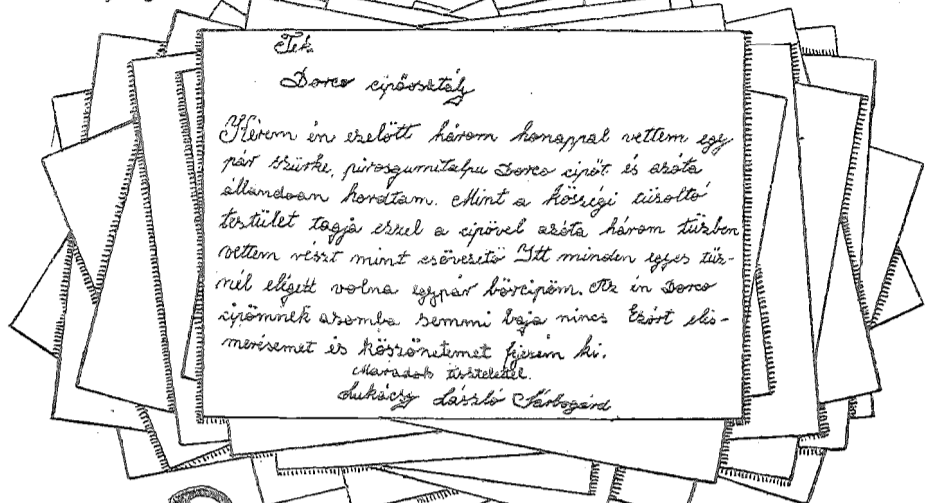 Tek.
Dorco cipőosztály
Kérem én ezelőtt három honappal vettem egy
pár szürke, pirosgumitalpu Dorco cipőt és azóta
állandoan hordtam. Mint a községi tüzoltó
testület tagja ezzel a cipövel azóta három tüzben
vettem részt mint csövezető Itt minden egyes tüz-
nél elégett volna egypár börcipöm. Az én Dorco
cipömnek azomba semmi baja nincs Ezért elis-
merésemet és köszönetemet fejezem ki.
Maradok tisztelettel.
Lukáczy László Sárbogárd